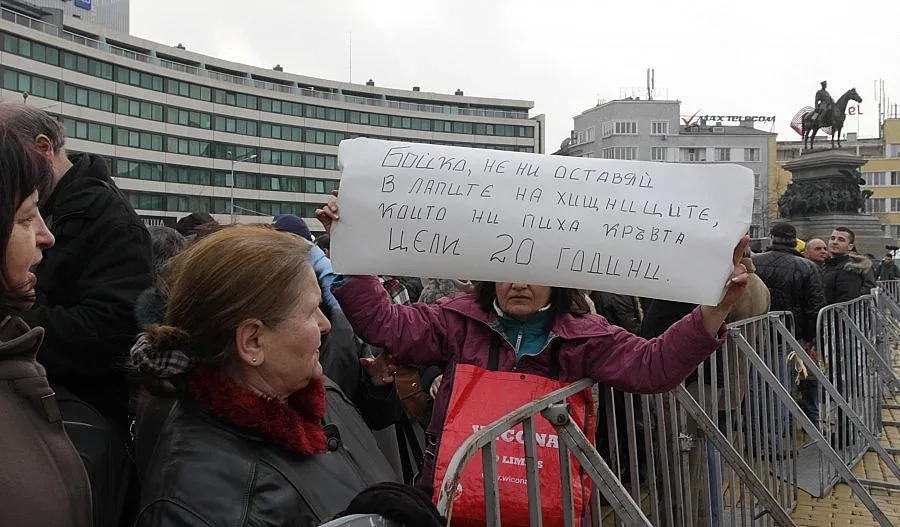 БОЙКО, НЕ НИ ОСТАВЯЙ
В ЛАПИТЕ НА ХИЩНИЦИТЕ,
КОИТО НИ ПИХА КРЪВТА
ЦЕЛИ 20 ГОДИНИ.
MAX TELECOM
WICONA
NO LIMITS
www.wicona.com